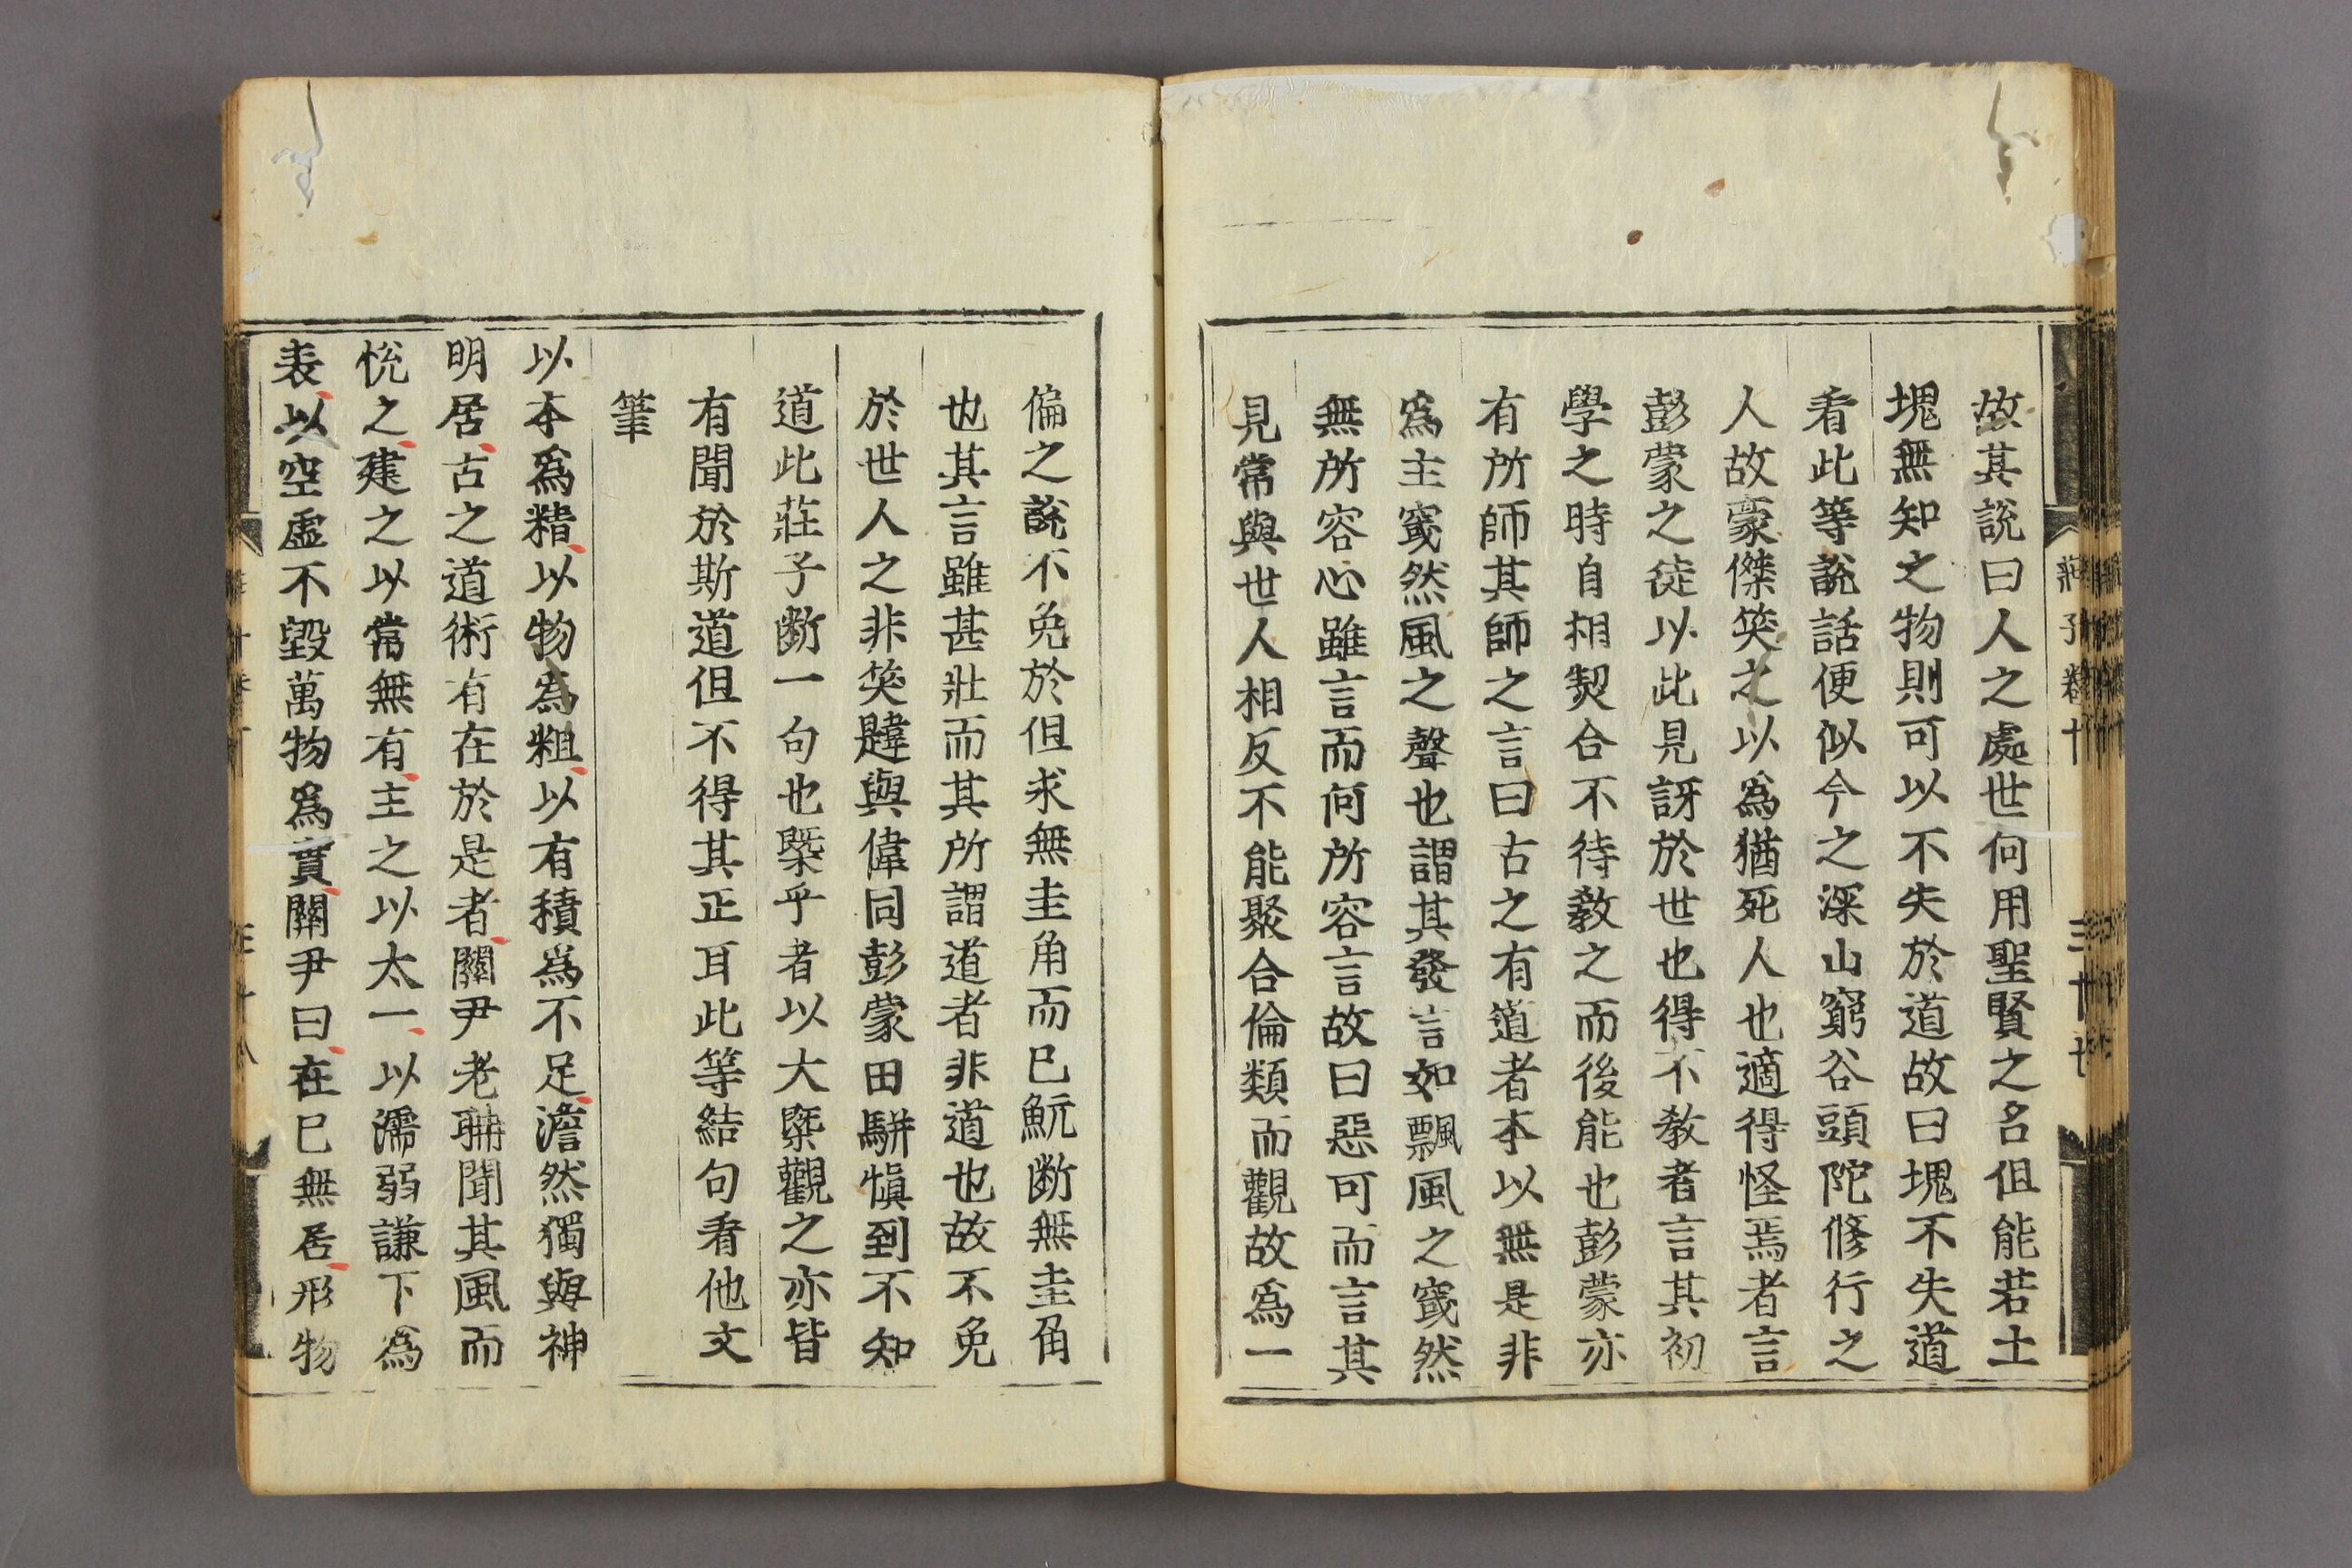 莊子卷十
三十七
故其說曰人之處世何用聖賢之名但能若土
塊無知之物則可以不失於道故曰塊不失道
看此等說話便似今之深山窮谷頭陀修行之
人故豪傑笑之以爲猶死人也適得怪焉者言
彭蒙之徒以此見訝於世也得不教者言其初
學之時自相契合不待教之而後能也彭蒙亦
有所師其師之言曰古之有道者本以無是非
爲主窢然風之聲也謂其發言如飄風之窢然
無所容心雖言而何所容言故曰惡可而言其
見常與世人相反不能聚合倫類而觀故爲一
偏之說不免於但求無圭角而已魭断無圭角
也其言雖甚壯而其所謂道者非道也故不免
於世人之非笑韙與偉同彭蒙田駢愼到不知
道此莊子断一句也槩乎者以大槩觀之亦皆
有聞於斯道但不得其正耳此等結句看他文
筆
以本爲精以物爲粗以有積爲不足澹然獨與神
明居古之道術有在於是者關尹老聃聞其風而
悅之建之以常無有主之以太一以濡弱謙下爲
表以空虛不毀萬物爲實關尹曰在已無居形物